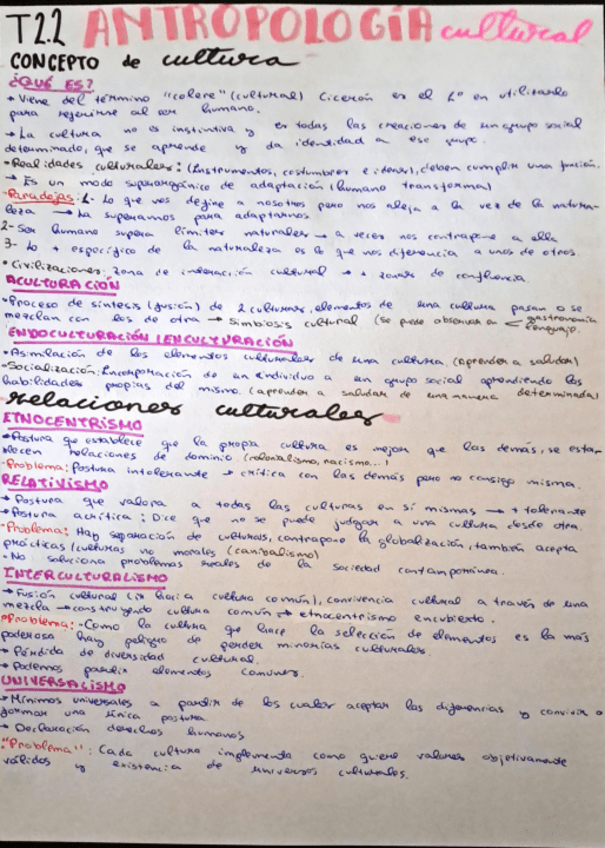 T2.2 ANTROPOLOGÍA cultural
CONCEPTO de cultura
¿QUÉ ES?
→ Viene del término "colere" (cultural) Cicerón es el 1º en utilizarlo
para referirse al ser humano.
→ La cultura no es instintiva y es todas las creaciones de un grupo social
determinado, que se aprende y da identidad a ese grupo.
• Realidades culturales: (Instrumentos, costumbres e ideas), deben cumplir una función.
→ Es un modo superorgánico de adaptación (humano transforma)
- Paradojas: 1- Lo que nos define a nosotros pero nos aleja a la vez de la natura-
leza → La superamos para adaptarnos
2- Ser humano supera límites naturales → a veces nos contrapone a ella
3- Lo + específico de la naturaleza es lo que nos diferencia a unos de otros.
• Civilizaciones: zona de interacción cultural → + zonas de confluencia.
ACULTURACIÓN
• Proceso de síntesis (fusión) de 2 culturas, elementos de una cultura pasan o se
mezclan con los de otra → Simbiosis cultural (se puede observar en < gastronomía
lenguaje.
ENDOCULTURACIÓN (ENCULTURACIÓN
• Asimilación de los elementos culturales de una cultura. (aprender a saludar)
• Socialización: Incorporación de un individuo a un grupo social aprendiendo las
habilidades propias del mismo. (aprender a saludar de una manera determinada)
relaciones culturales
ETNOCENTRISMO
→ Postura que establece que la propia cultura es mejor que las demás, se esta-
blecen relaciones de dominio. (colonialismo, racismo...)
- Problema: Postura intolerante → crítica con las demás pero no consigo misma.
RELATIVISMO
→ Postura que valora a todas las culturas en sí mismas → + tolerante
→ Postura acrítica: Dice que no se puede juzgar a una cultura desde otra.
- Problema: Hay separación de culturas, contrapone la globalización, también acepta
prácticas/culturas no morales (canibalismo)
- No soluciona problemas reales de la sociedad contemporánea.
INTERCULTURALISMO
→ Fusión cultural (ir hacia cultura común), convivencia cultural a través de una
mezcla → construyendo cultura común → etnocentrismo encubierto.
• Problema: - Como la cultura que hace la selección de elementos es la más
poderosa hay peligro de perder minorías culturales.
→ Pérdida de diversidad cultural.
→ Podemos perder elementos comunes.
UNIVERSALISMO
→ Mínimos universales a partir de los cuales aceptar las diferencias y convivir o
formar una única postura
→ Declaración derechos humanos
- "Problema": Cada cultura implementa como quiere valores objetivamente
válidos y existencia de universos culturales.